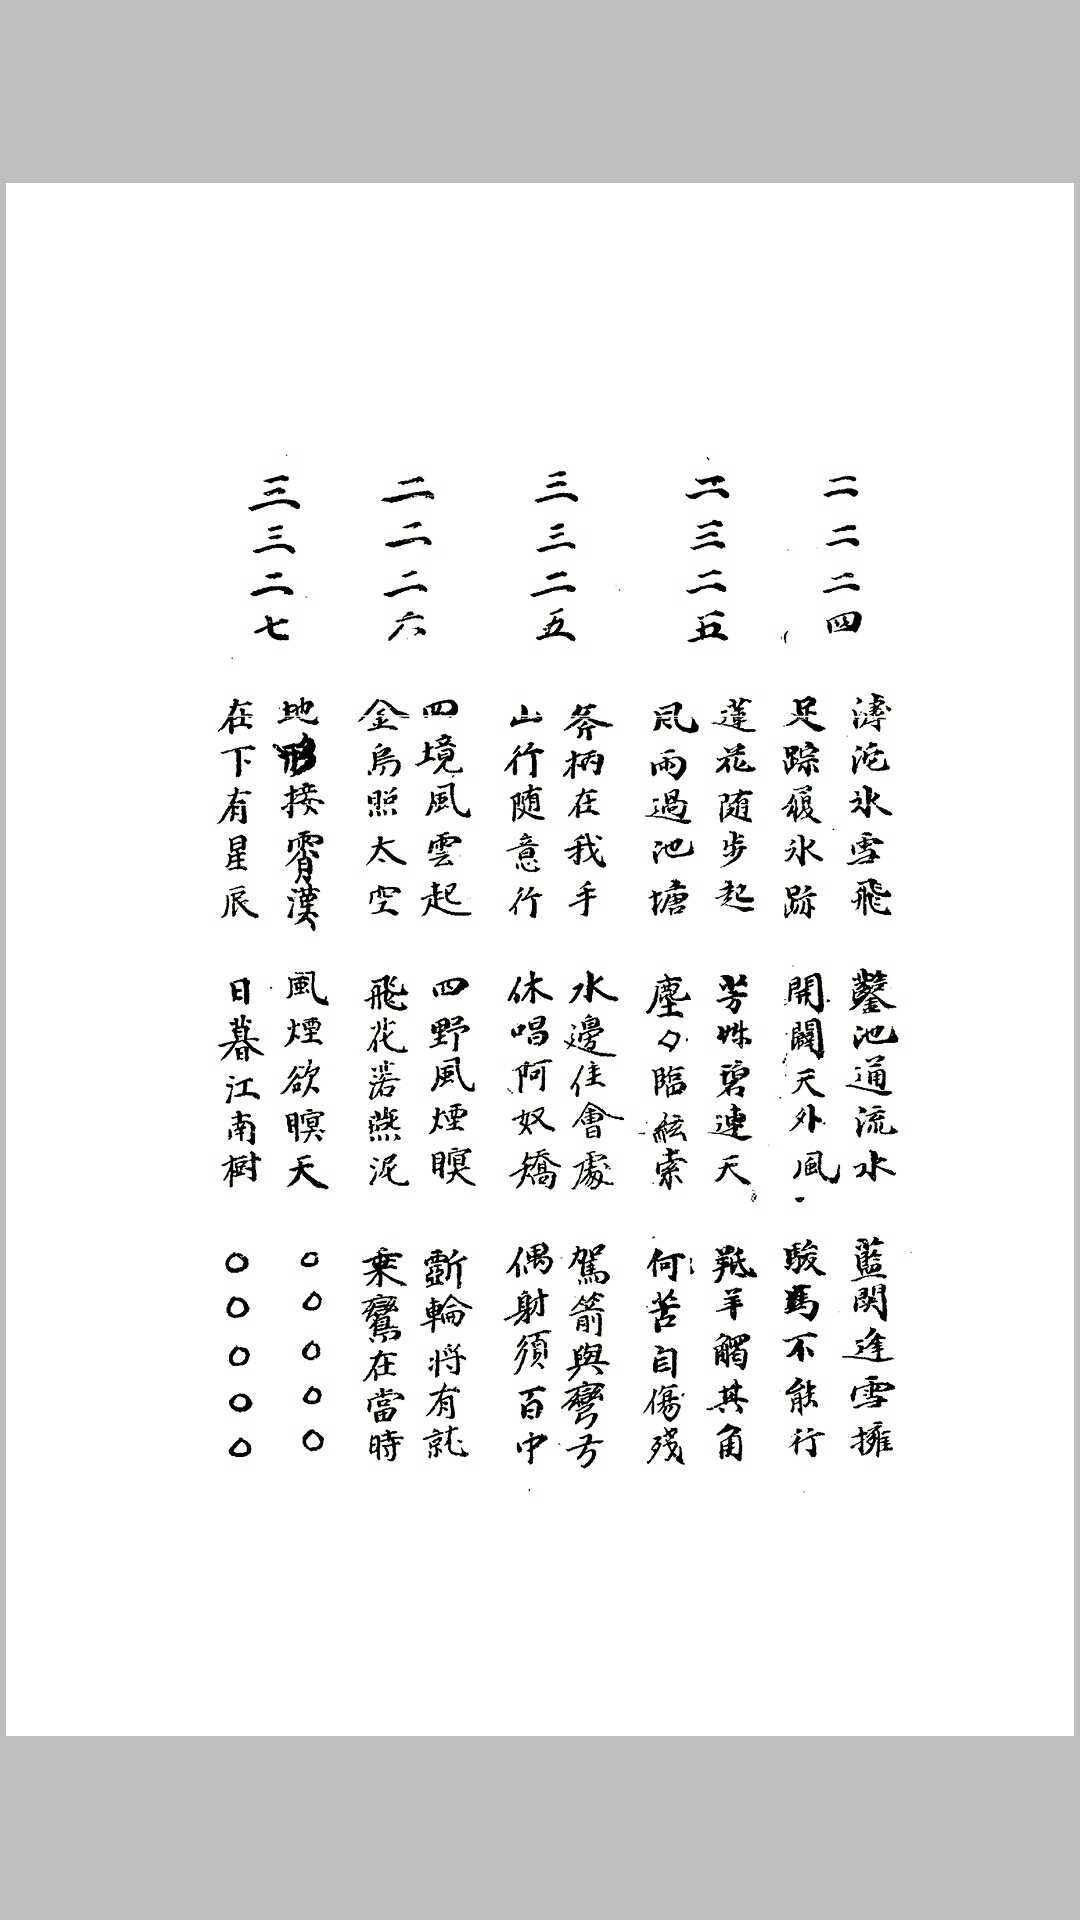 二二二四
滹沱氷雪飛 鑿池通流水 藍関逢雪擁
足踪履氷跡 開闢天外風 駿馬不能行
二三二五
蓮花随步起 芳姝碧連天 羝羊觸其角
風雨過池塘 塵夕臨絃索 何苦自傷殘
三三二五
斧柄在我手 水邊佳會處 駕箭與彎弓
山行随意行 休唱阿奴嬌 偶射須百中
二二二六
四境風雲起 四野風煙暝 斵輪将有就
金烏照太空 飛花落燕泥 乗鸞在當時
三三二七
地形接霄漢 風煙欲瞑天 ○○○○○
在下有星辰 日暮江南樹 ○○○○○